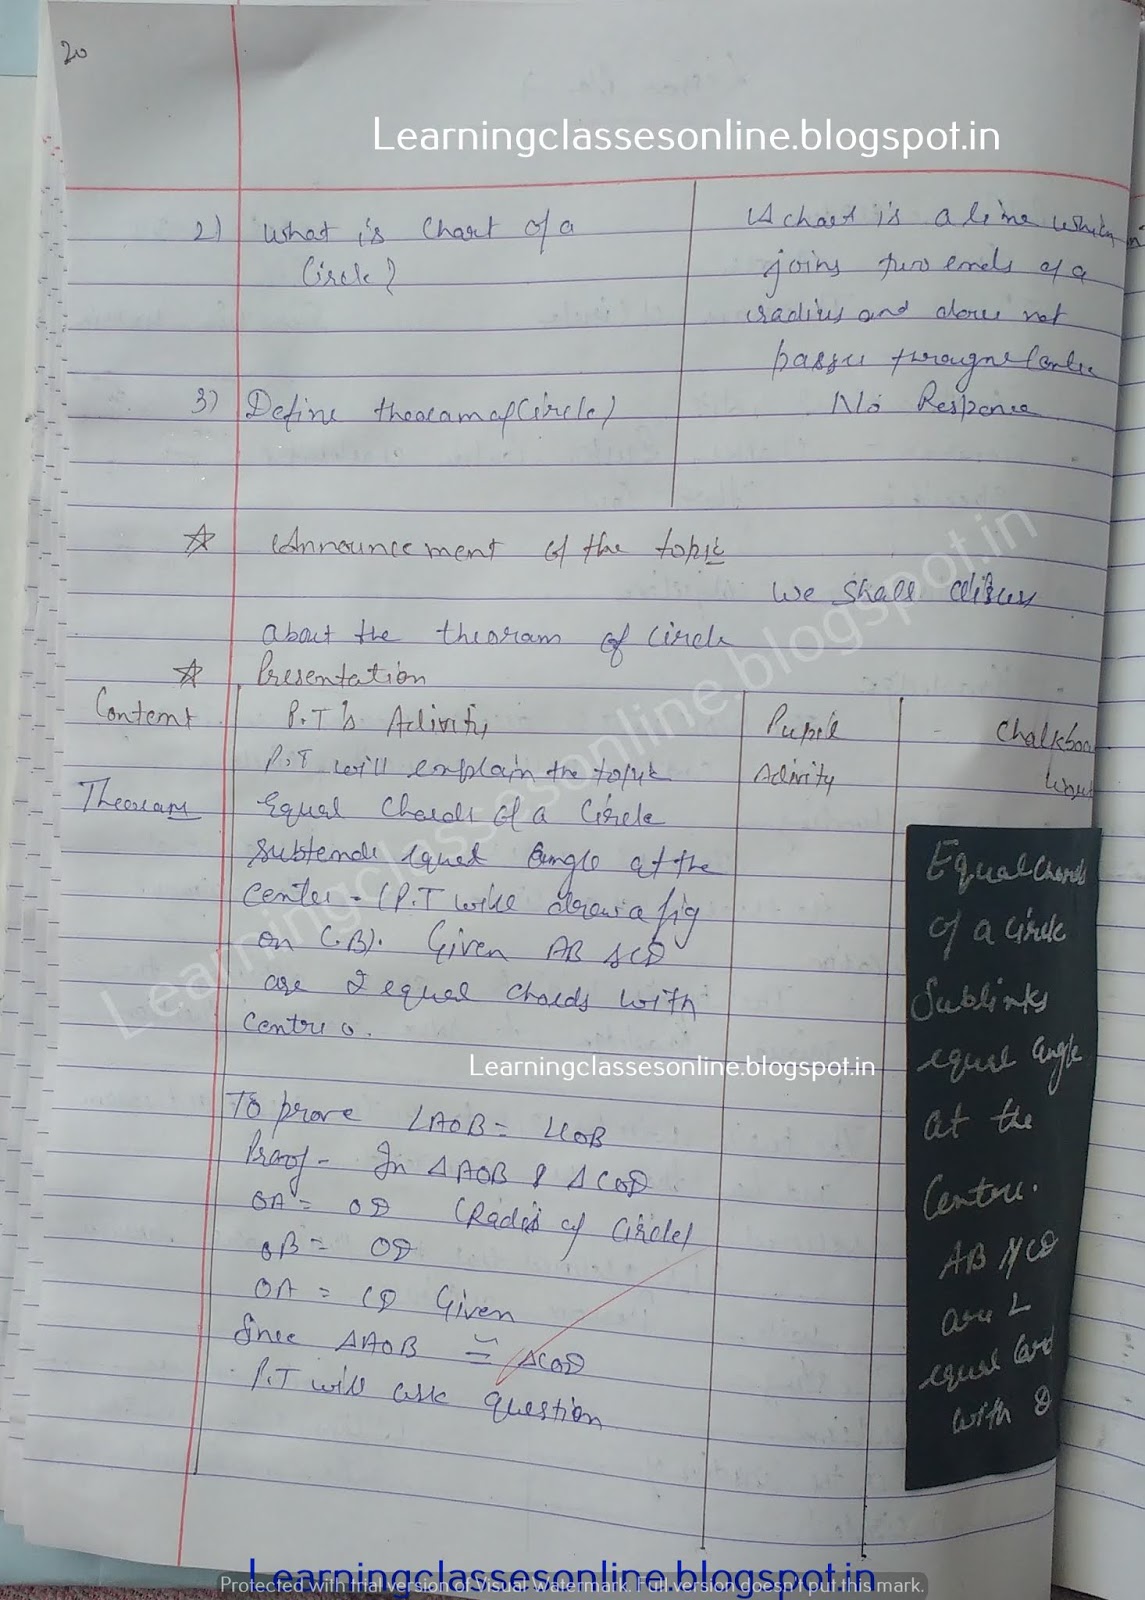 20
Learningclassesonline.blogspot.in
2) What is Chart of a
Circle?
A chart is a line which
joins two ends of a
radius and does not
passes through Centre
3) Define theoram of Circle?
No Response
☆ Announcement of the topic
We shall discuss
about the theoram of circle
☆ Presentation
Content
P.T's Activity
Pupil
Activity
Chalkboa
Work
P.T will explain the topic
Theoram
Equal Chords of a Circle
Subtends equal angle at the
center - (P.T will draw a fig
on C.B). Given AB & CD
are 2 equal chords with
Centre o.
Learningclassesonline.blogspot.in
To prove ∠AOB = ∠COB
Proof - In △AOB & △COD
OA = OD (Radis of Circle)
OB = OD
OA = CD Given
Since △AOB ≅ △COD
P.T will ask question
Equal Chords
of a Circle
Sublinks
equal angle
at the
Centre.
AB & CD
are 2
equal Cord
with O
Learningclassesonline.blogspot.in
Learningclassesonline.blogspot.in
Protected with trial version of Visual Watermark. Full version doesn't put this mark.